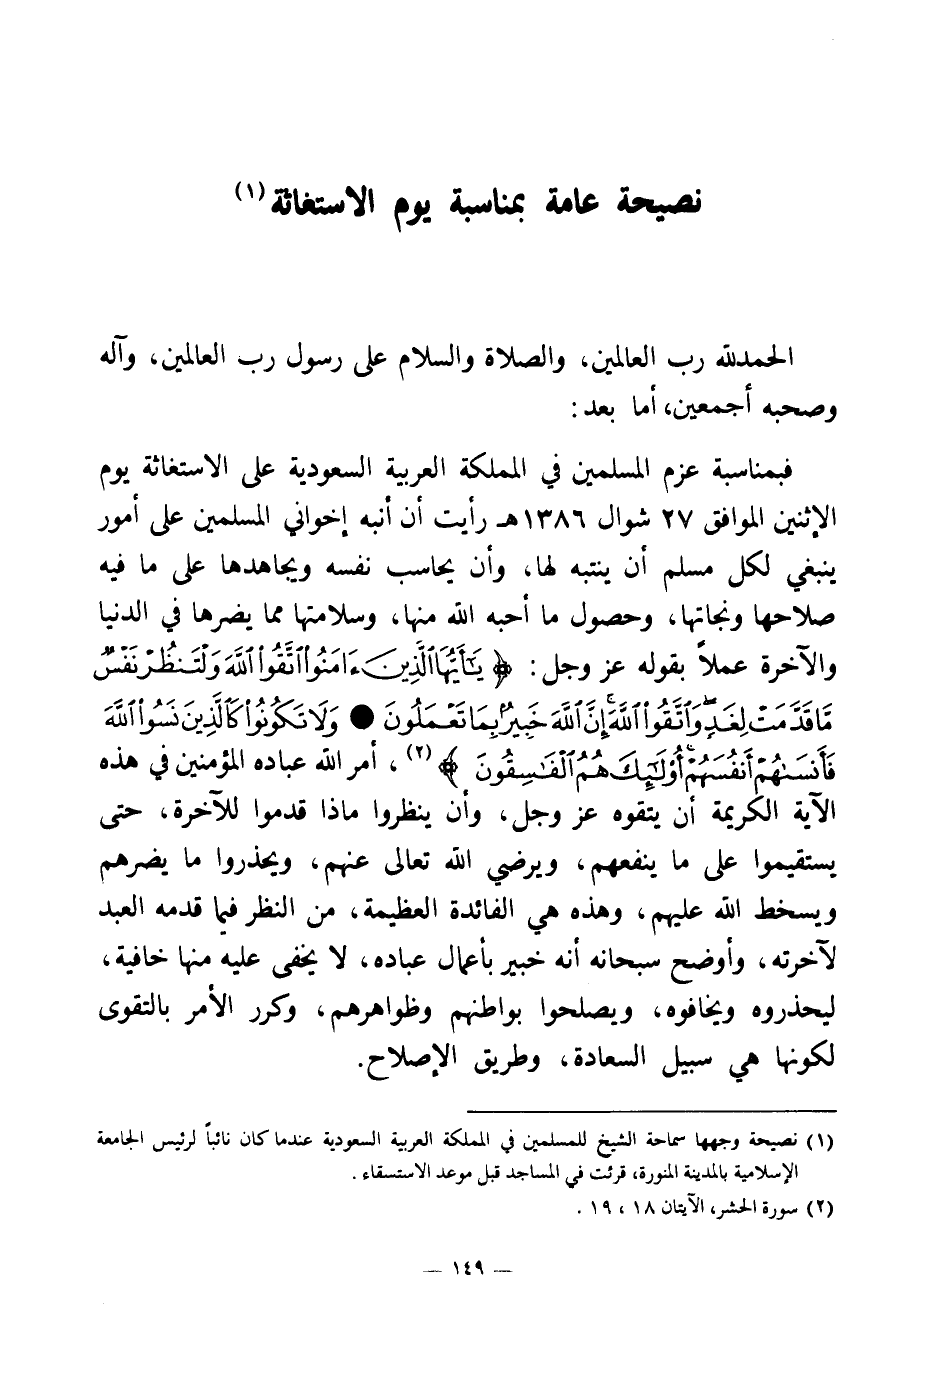 نصيحة عامة بمناسبة يوم الاستغاثة (١)
الحمدلله رب العالمين، والصلاة والسلام على رسول رب العالمين، وآله
وصحبه أجمعين، أما بعد:
فبمناسبة عزم المسلمين في المملكة العربية السعودية على الاستغاثة يوم
الإثنين الموافق ٢٧ شوال ١٣٨٦هـ رأيت أن أنبه إخواني المسلمين على أمور
ينبغي لكل مسلم أن ينتبه لها، وأن يحاسب نفسه ويجاهدها على ما فيه
صلاحها ونجاتها، وحصول ما أحبه الله منها، وسلامتها مما يضرها في الدنيا
والآخرة عملاً بقوله عز وجل: ﴿ يَٰٓأَيُّهَا ٱلَّذِينَ ءَامَنُوا۟ ٱتَّقُوا۟ ٱللَّهَ وَلْتَنظُرْ نَفْسٌ
مَّا قَدَّمَتْ لِغَدٍۖ وَٱتَّقُوا۟ ٱللَّهَۚ إِنَّ ٱللَّهَ خَبِيرٌۢ بِمَا تَعْمَلُونَ ● وَلَا تَكُونُوا۟ كَٱلَّذِينَ نَسُوا۟ ٱللَّهَ
فَأَنسَىٰهُمْ أَنفُسَهُمْۚ أُو۟لَٰٓئِكَ هُمُ ٱلْفَٰسِقُونَ ﴾ (٢)، أمر الله عباده المؤمنين في هذه
الآية الكريمة أن يتقوه عز وجل، وأن ينظروا ماذا قدموا للآخرة، حتى
يستقيموا على ما ينفعهم، ويرضي الله تعالى عنهم، ويحذروا ما يضرهم
ويسخط الله عليهم، وهذه هي الفائدة العظيمة، من النظر فيما قدمه العبد
لآخرته، وأوضح سبحانه أنه خبير بأعمال عباده، لا يخفى عليه منها خافية،
ليحذروه ويخافوه، ويصلحوا بواطنهم وظواهرهم، وكرر الأمر بالتقوى
لكونها هي سبيل السعادة، وطريق الإصلاح.
(١) نصيحة وجهها سماحة الشيخ للمسلمين في المملكة العربية السعودية عندما كان نائباً لرئيس الجامعة
الإسلامية بالمدينة المنورة، قرئت في المساجد قبل موعد الاستسقاء.
(٢) سورة الحشر، الآيتان ١٨، ١٩.
— ١٤٩ —